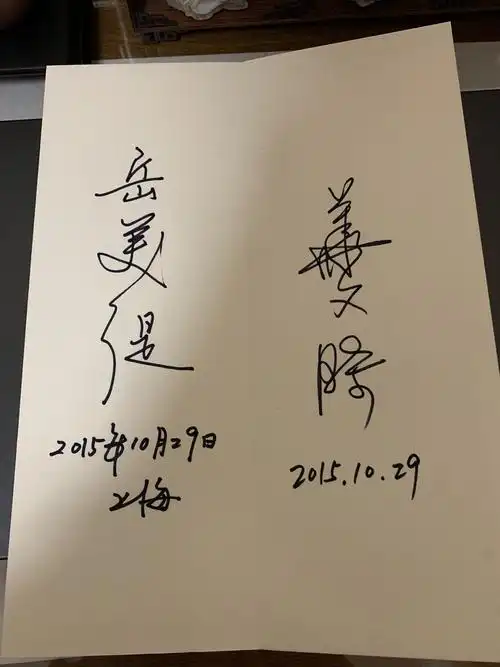 岳美缇
2015年10月29日
上海
華文漪
2015.10.29